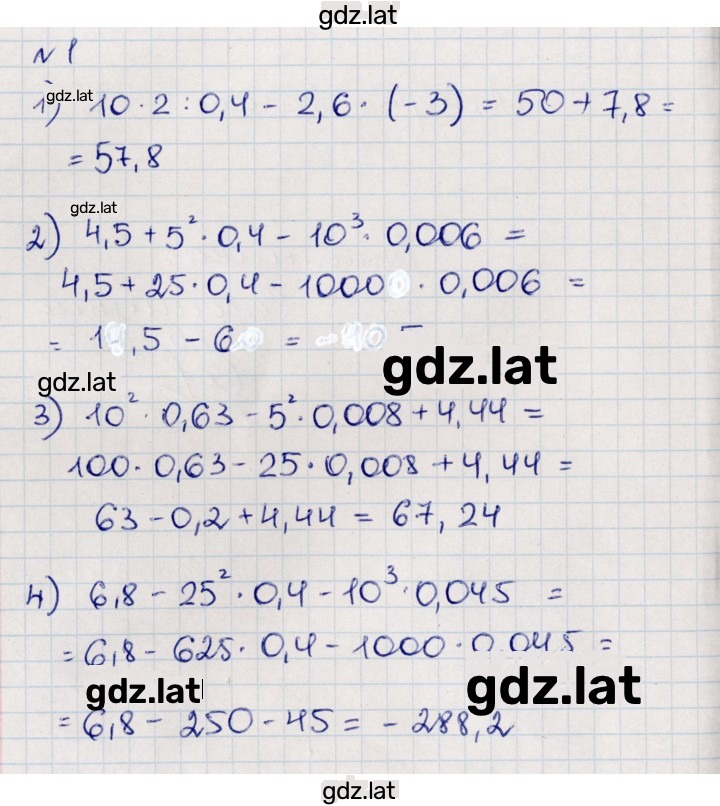 gdz.lat
N 1
gdz.lat
1) 10 · 2 : 0,4 - 2,6 · (-3) = 50 + 7,8 =
= 57,8
gdz.lat
2) 4,5 + 5² · 0,4 - 10³ · 0,006 =
4,5 + 25 · 0,4 - 1000 · 0,006 =
= 1 ,5 - 6 =
gdz.lat
gdz.lat
3) 10² · 0,63 - 5² · 0,008 + 4,44 =
100 · 0,63 - 25 · 0,008 + 4,44 =
63 - 0,2 + 4,44 = 67,24
4) 6,8 - 25² · 0,4 - 10³ · 0,045 =
= 6,8 - 625 · 0,4 - 1000 · 0,045 =
gdz.lat
gdz.lat
= 6,8 - 250 - 45 = - 288,2
gdz.lat